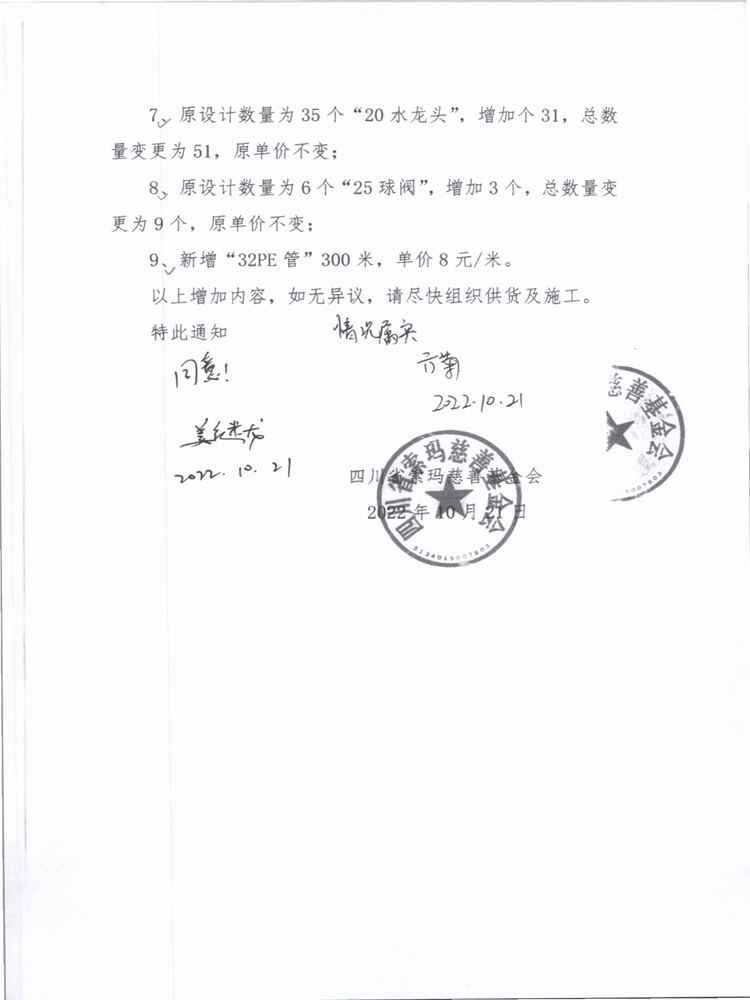 7、原设计数量为 35 个“20 水龙头”，增加个 31，总数
量变更为 51，原单价不变；
8、原设计数量为 6 个“25 球阀”，增加 3 个，总数量变
更为 9 个，原单价不变；
9、新增“32PE 管”300 米，单价 8 元/米。
以上增加内容，如无异议，请尽快组织供货及施工。
特此通知
情况属实
同意！
2022.10.21
2022.10.21
四川省索玛慈善基金会
2022 年 10 月 21 日
四川省索玛慈善基金会
慈善基金会